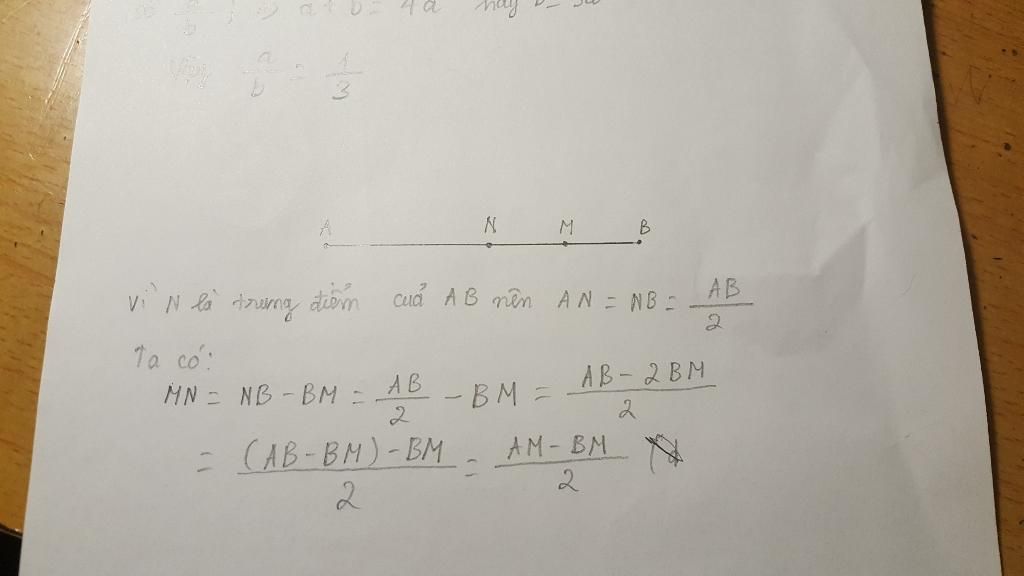 a/b ; => a + b = 4a hay b = 3a
Vậy a/b = 1/3
A N M B
Vì N là trung điểm cuả AB nên AN = NB = AB/2
Ta có:
MN = NB - BM = AB/2 - BM = AB - 2BM/2
= (AB - BM) - BM/2 = AM - BM/2